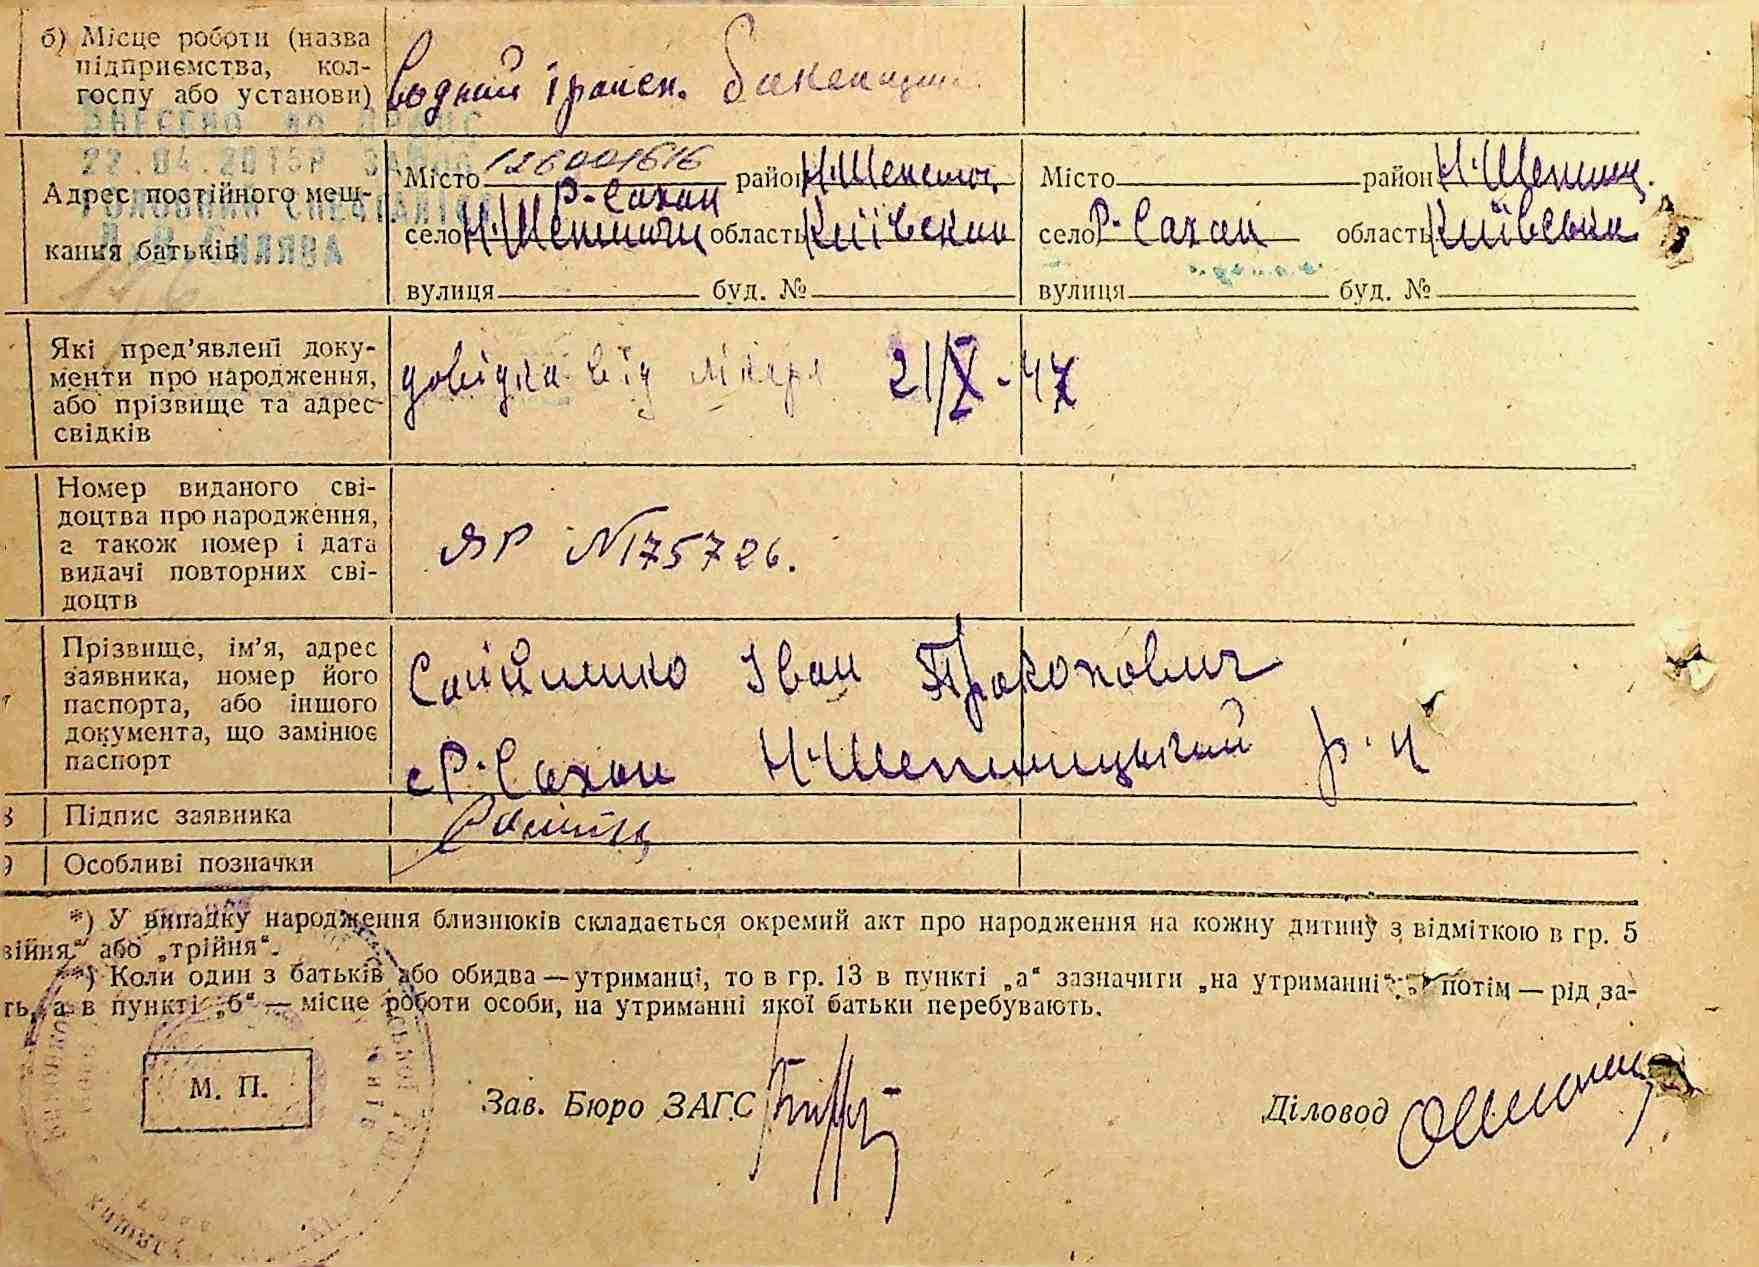 б) Місце роботи (назва
підприємства, кол-
госпу або установи)
водний трансп.
ВНЕСЕНО до ДРАЦС
22.04.2015р
Адрес постійного меш-
кання батьків
Місто 126001616 район Н-Шепелич.
Р-Сахан
село Н-Шепеличи область Київская
вулиця буд. №
Місто район Н-Шепелиц.
село Р-Сахан область Київська
вулиця буд. №
Які пред'явлені доку-
менти про народження,
або прізвище та адрес
свідків
довідка від лікаря 21/X-47
Номер виданого сві-
доцтва про народження,
а також номер і дата
видачі повторних сві-
доцтв
ЯР №175726.
Прізвище, ім'я, адрес
заявника, номер його
паспорта, або іншого
документа, що замінює
паспорт
Іван Прокопович
с Р-Сахан Н-Шепелицький р-н
8 Підпис заявника
9 Особливі позначки
*) У випадку народження близнюків складається окремий акт про народження на кожну дитину з відміткою в гр. 5
війня" або „трійня".
**) Коли один з батьків або обидва — утриманці, то в гр. 13 в пункті „а" зазначити „на утриманні", потім — рід за-
ть, а в пункті „б" — місце роботи особи, на утриманні якої батьки перебувають.
М. П.
Зав. Бюро ЗАГС
Діловод